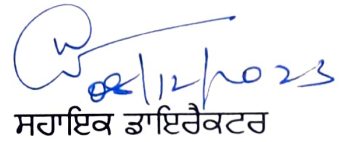 02/12/2023
ਸਹਾਇਕ ਡਾਇਰੈਕਟਰ